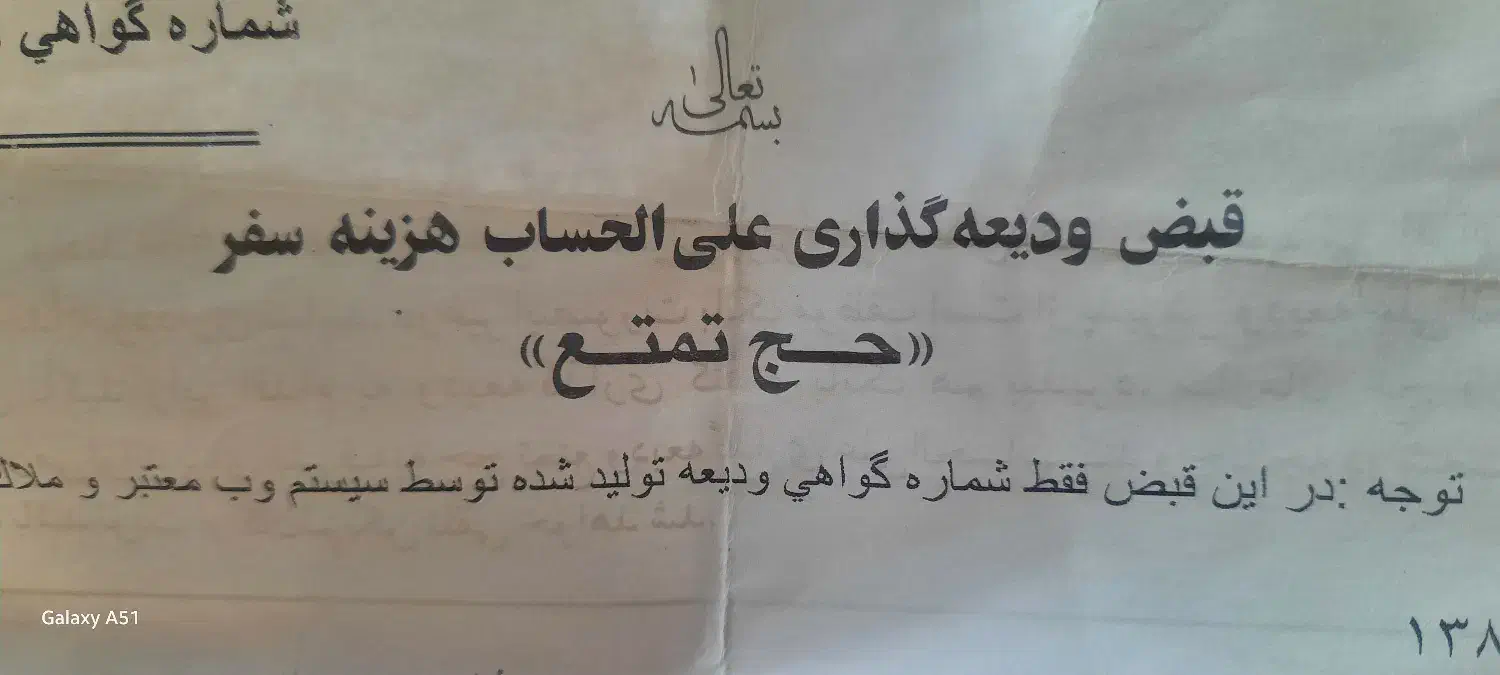 شماره گواهي
بسمه تعالی
قبض ودیعه‌گذاری علی‌الحساب هزینه سفر
«حج تمتع»
توجه :در این قبض فقط شماره گواهي ودیعه تولید شده توسط سیستم وب معتبر و ملاك
۱۳۸
Galaxy A51